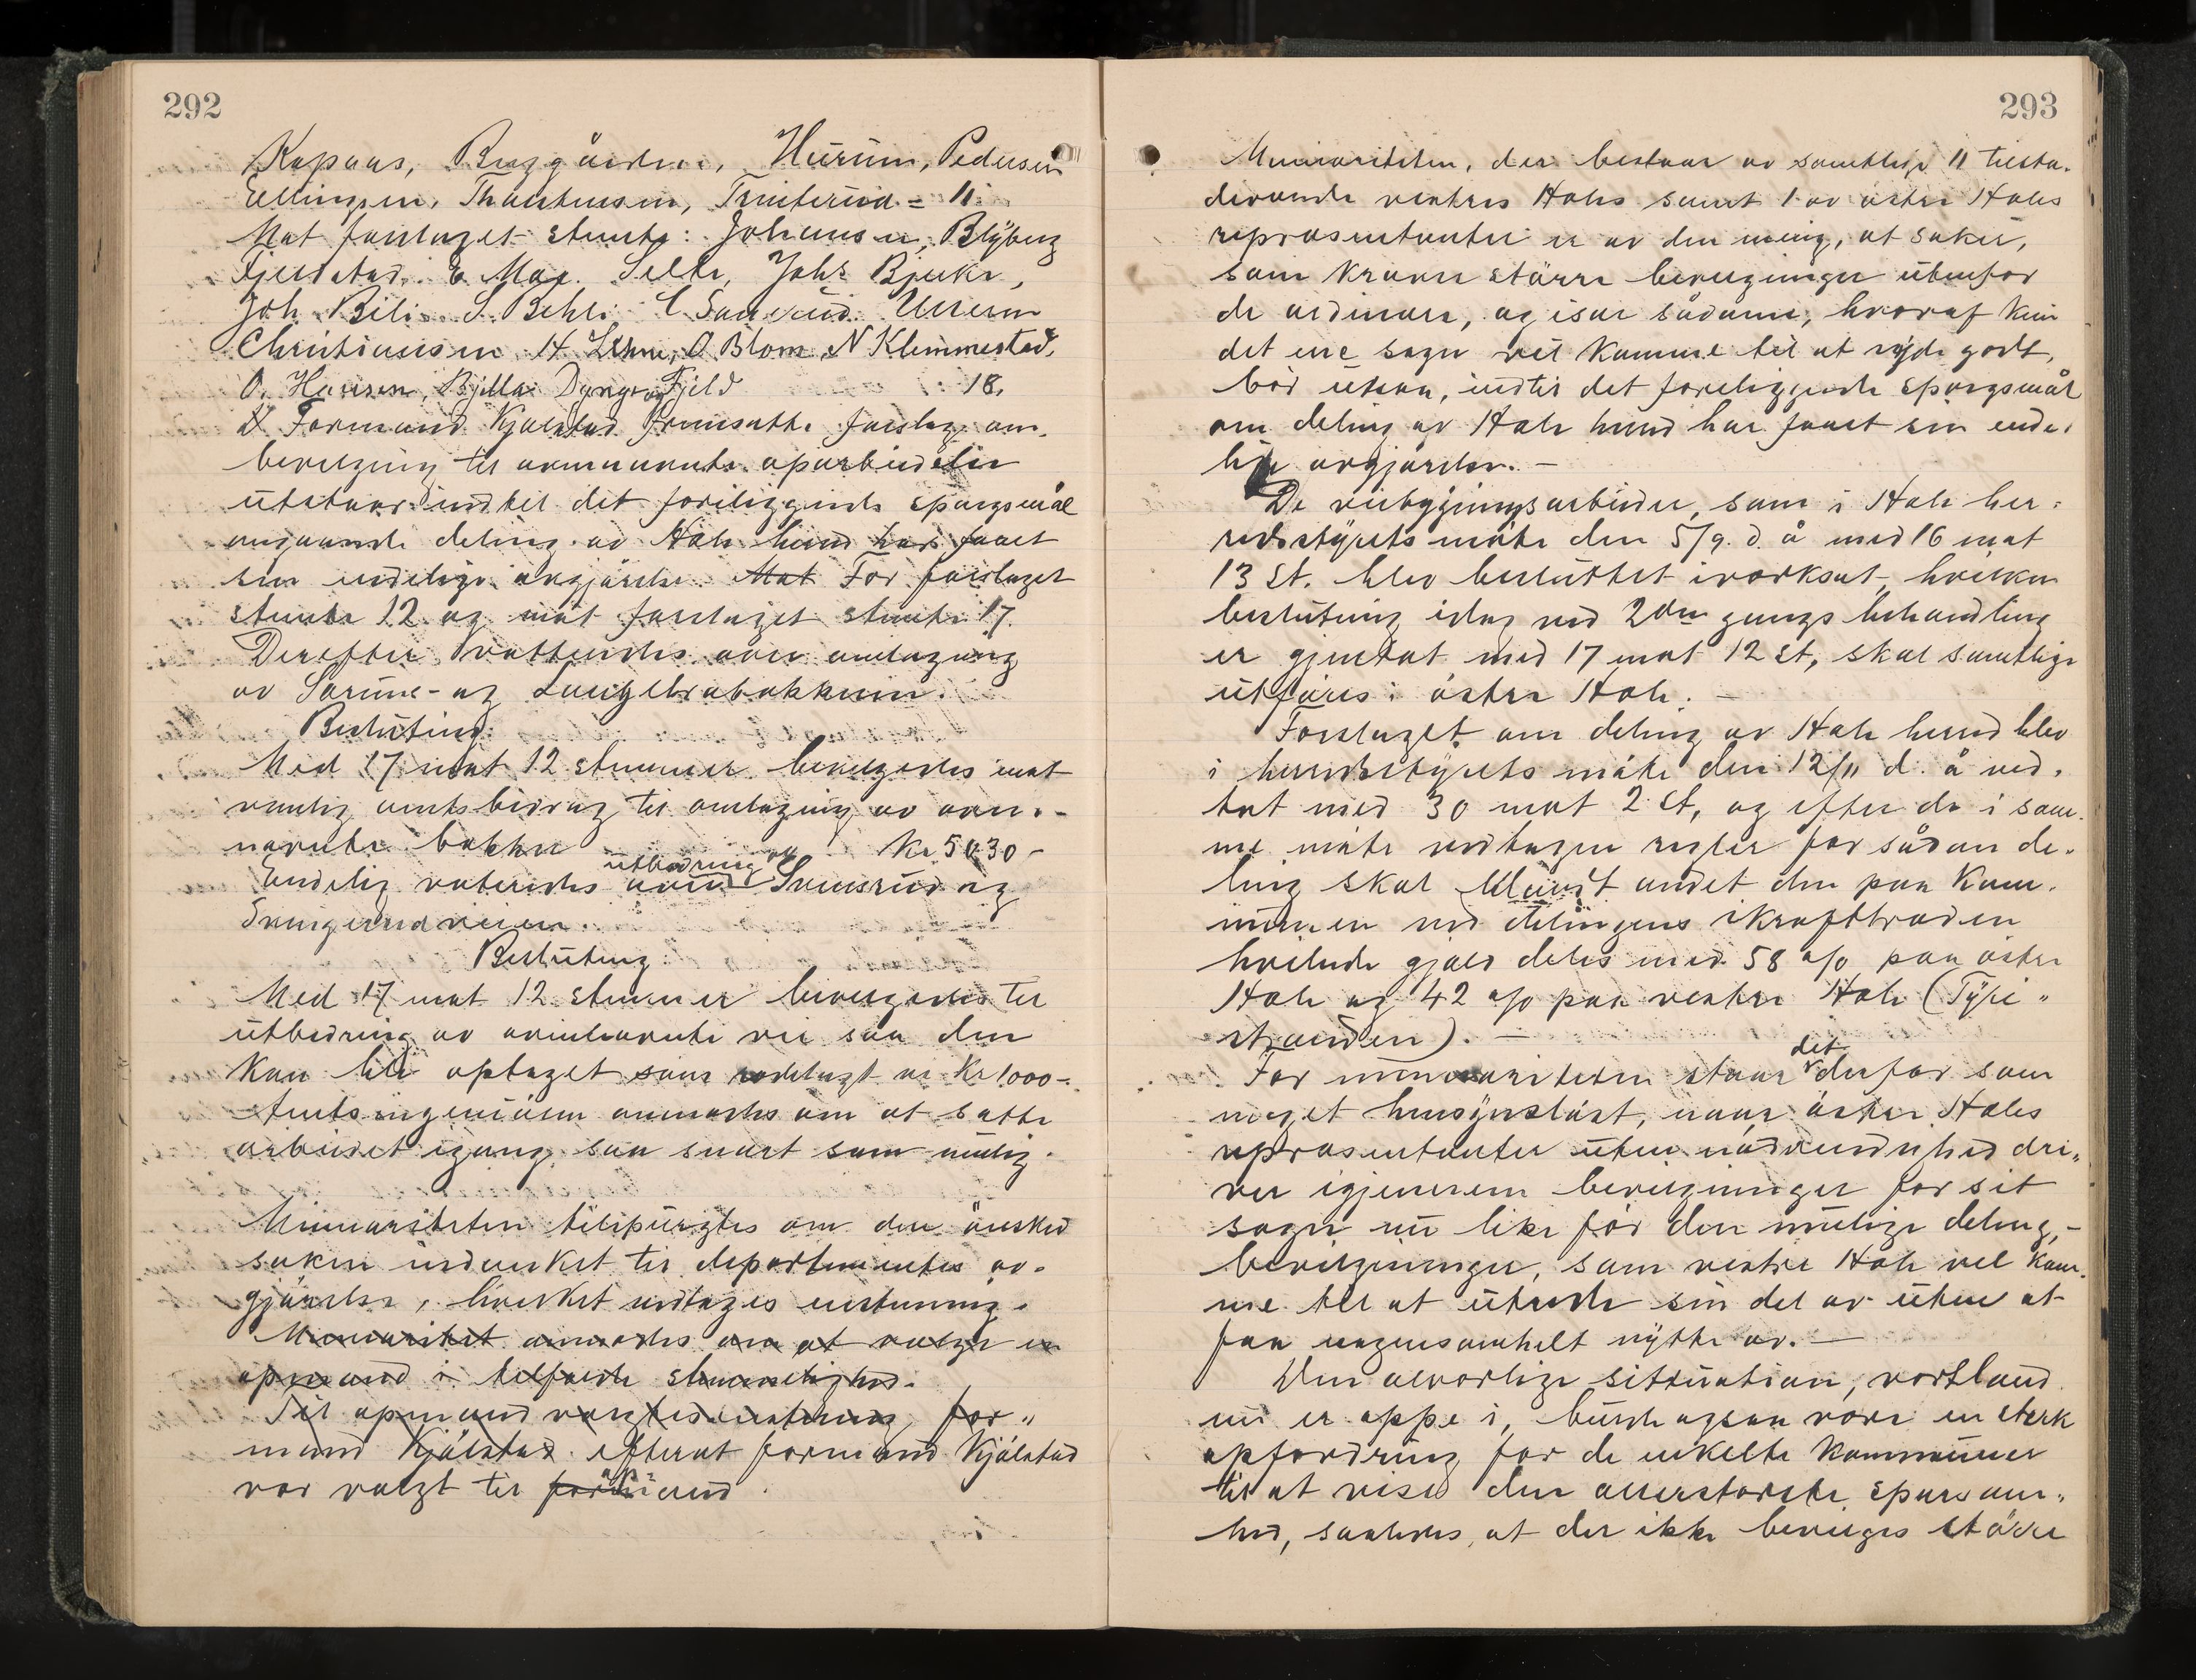 292
Kapaas, Berggården, Hurum, Pedersen
Ellingsen, Thorstensen, = 11.
Mot forslaget stemte: Johansen, Blyberg
Fjeldstad. E. Moe. Selte, Johs Bjerke,
Joh. Bili. S. Behli
Christiansen, H Lehne, O. Blom, N Klemmestad,
O. Hansen, Bjella Dyngo og Fjeld : 18.
Formand Kjølstad fremsatte forslag om,
bevilgning til omnævnte oparbeidelse
utstaar indtil det foreliggende spørgsmål
angaaende deling av Hole herred har faaet
sin endelige avgjørelse. Mot For forslaget
stemte 12 og mot forslaget stemte 17.
Derefter vottertes over omlægning
av Sørum- og bakken.
Beslutting:
Med 17 mot 12 stemmer bevilgedes mot
vanlig amtsbidrag til omlægning av oven-
nævnte bakker Kr 5030-
Endelig votertes over utbedring av Svensrud og
veien.
Beslutting:
Med 17 mot 12 stemmer bevilgedes til
utbedring av omhandlete vei saa den
kan bli optaget som rodelagt vei Kr 1000-.
Amtsingeniøren anmodes om at sætte
arbeidet igang saa snart som mulig.
Minnoriteten tilspurgtes om den ønsket
saken indanket til departementes av-
gjørelse, hvilket vedtages enstemmig.
Minnoritet anmodes om at vælge en
opmand i tilfælde stemmelighed.
Til opmand valgtes enstemmig for"
mand Kjølstad. efterat formand Kjølstad
var valgt til formand
293
Minnoriteten, der bestaar av samtlige 11 tilste-
deværende vestre Holes samt 1 av østre Holes
representanter er av den mening, at saker,
som kræver større bevilgninger utenfor
de ordinære, og især sådanne, hvoraf kun
det ene sogn vil komme til at nyde godt,
bør utsaa, indtil det foreliggende spørgsmål
om deling av Hole herred har faaet sin ende-
lige avgjørelse. -
De veibygningsarbeider, som i Hole her-
redsstyrets møte den 5/9 d. å med 16 mot
13 St. blev besluttet iværksat, hvilken
beslutning idag ved 2den gangs behandling
er gjentat med 17 mot 12 st, skal samtlige
utføres i østre Hole. -
Forslaget om deling av Hole herred blev
i herredsstyrets møte den 12/11 d. å ved-
tat med 30 mot 2 St, og efter de i sam-
me møte vedtagne regler for sådan de-
ling skal blandt andet den paa kom-
munen ved delingens ikrafttræden
hvilende gjæld deles med 58 % paa østre
Hole og 42 % paa vestre Hole (Tyri"
stranden). -
For minnoriteten staar det derfor som
meget hensynsløst, naar østre Holes
representanter uten nødvendighed dri"
ver igjennem bevilgninger for sit
sogn nu like før den mulige deling,-
bevilgninger, som vestre Hole vil kom-
me til at utrede sin del av uten at
faa nogensomhelst nytte av. -
Den alvorlige sittuation, vort land
nu er oppe i, burde ogsaa være en sterk
opfordring for de enkelte kommuner
til at vise den allerstørste sparsom-
hed, saaledes, at der ikke bevilges større